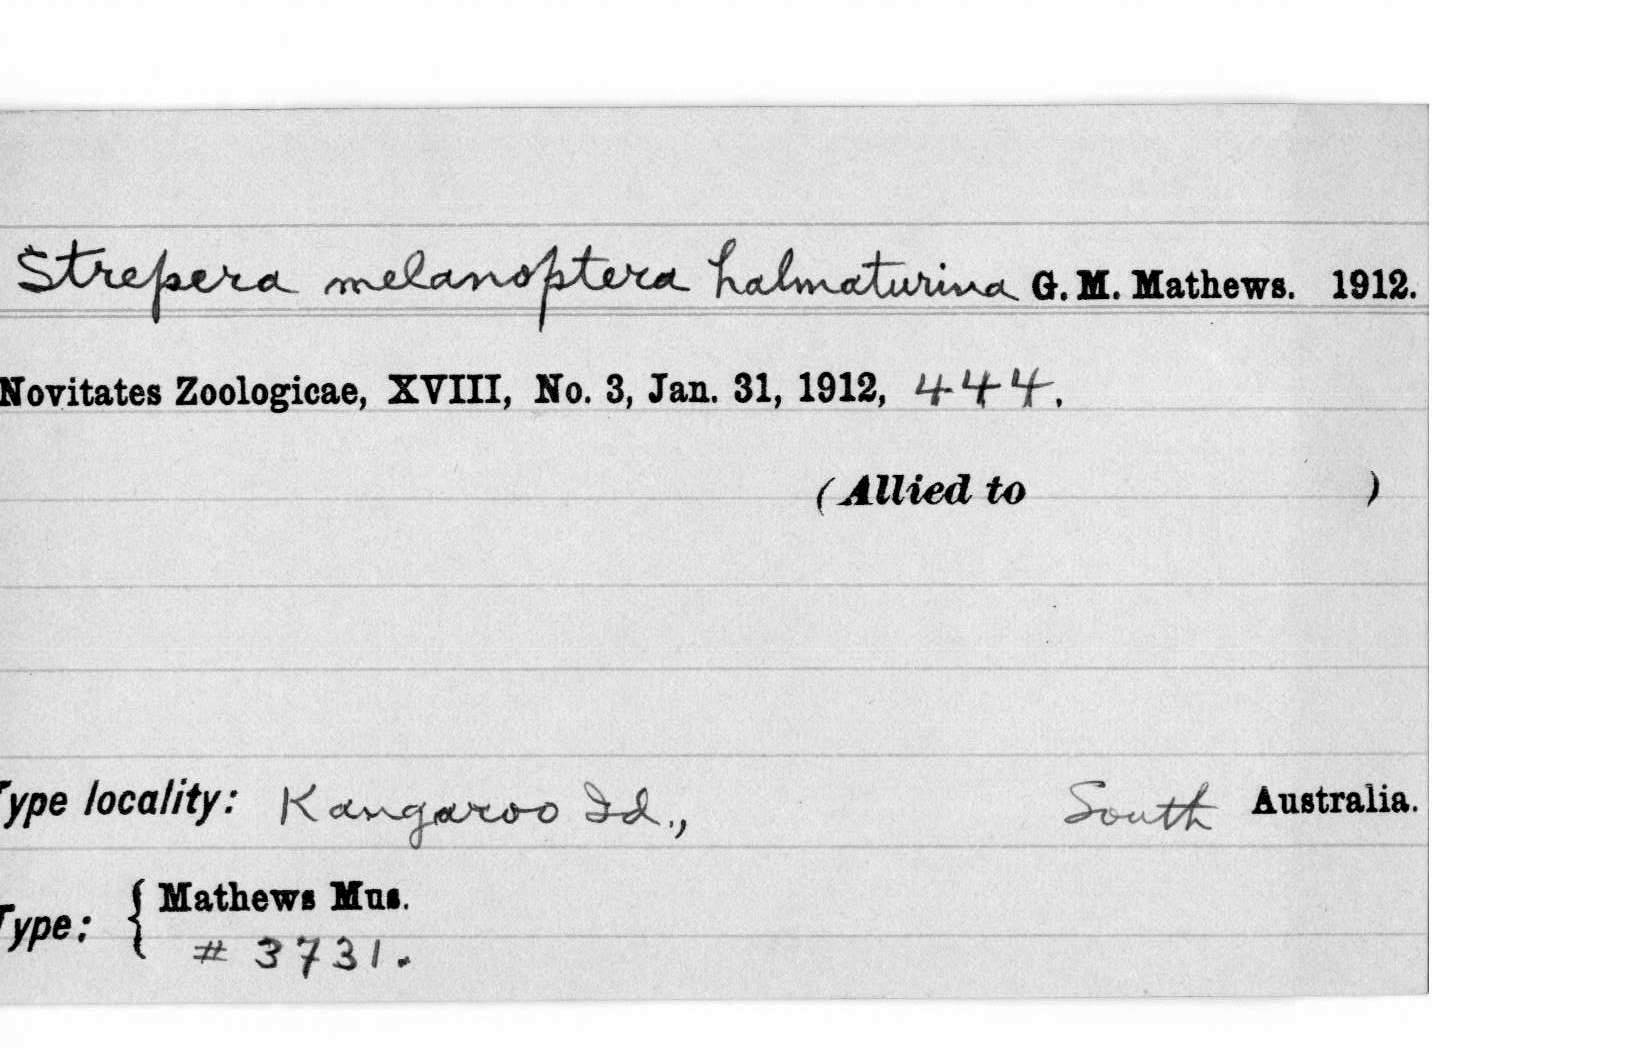 Strepera melanoptera halmaturina G. M. Mathews. 1912.
Novitates Zoologicae, XVIII, No. 3, Jan. 31, 1912, 444.
(Allied to )
Type locality: Kangaroo Id., South Australia.
Type: { Mathews Mus.
# 3731.